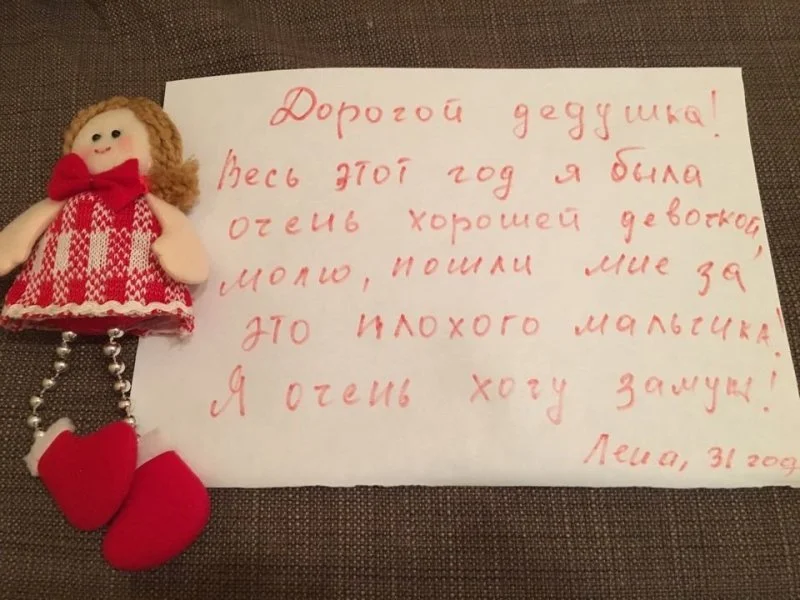 Дорогой дедушка!
Весь этот год я была
очень хорошей девочкой,
молю, пошли мне за
это плохого мальчика!
Я очень хочу замуж!
Лена, 31 год